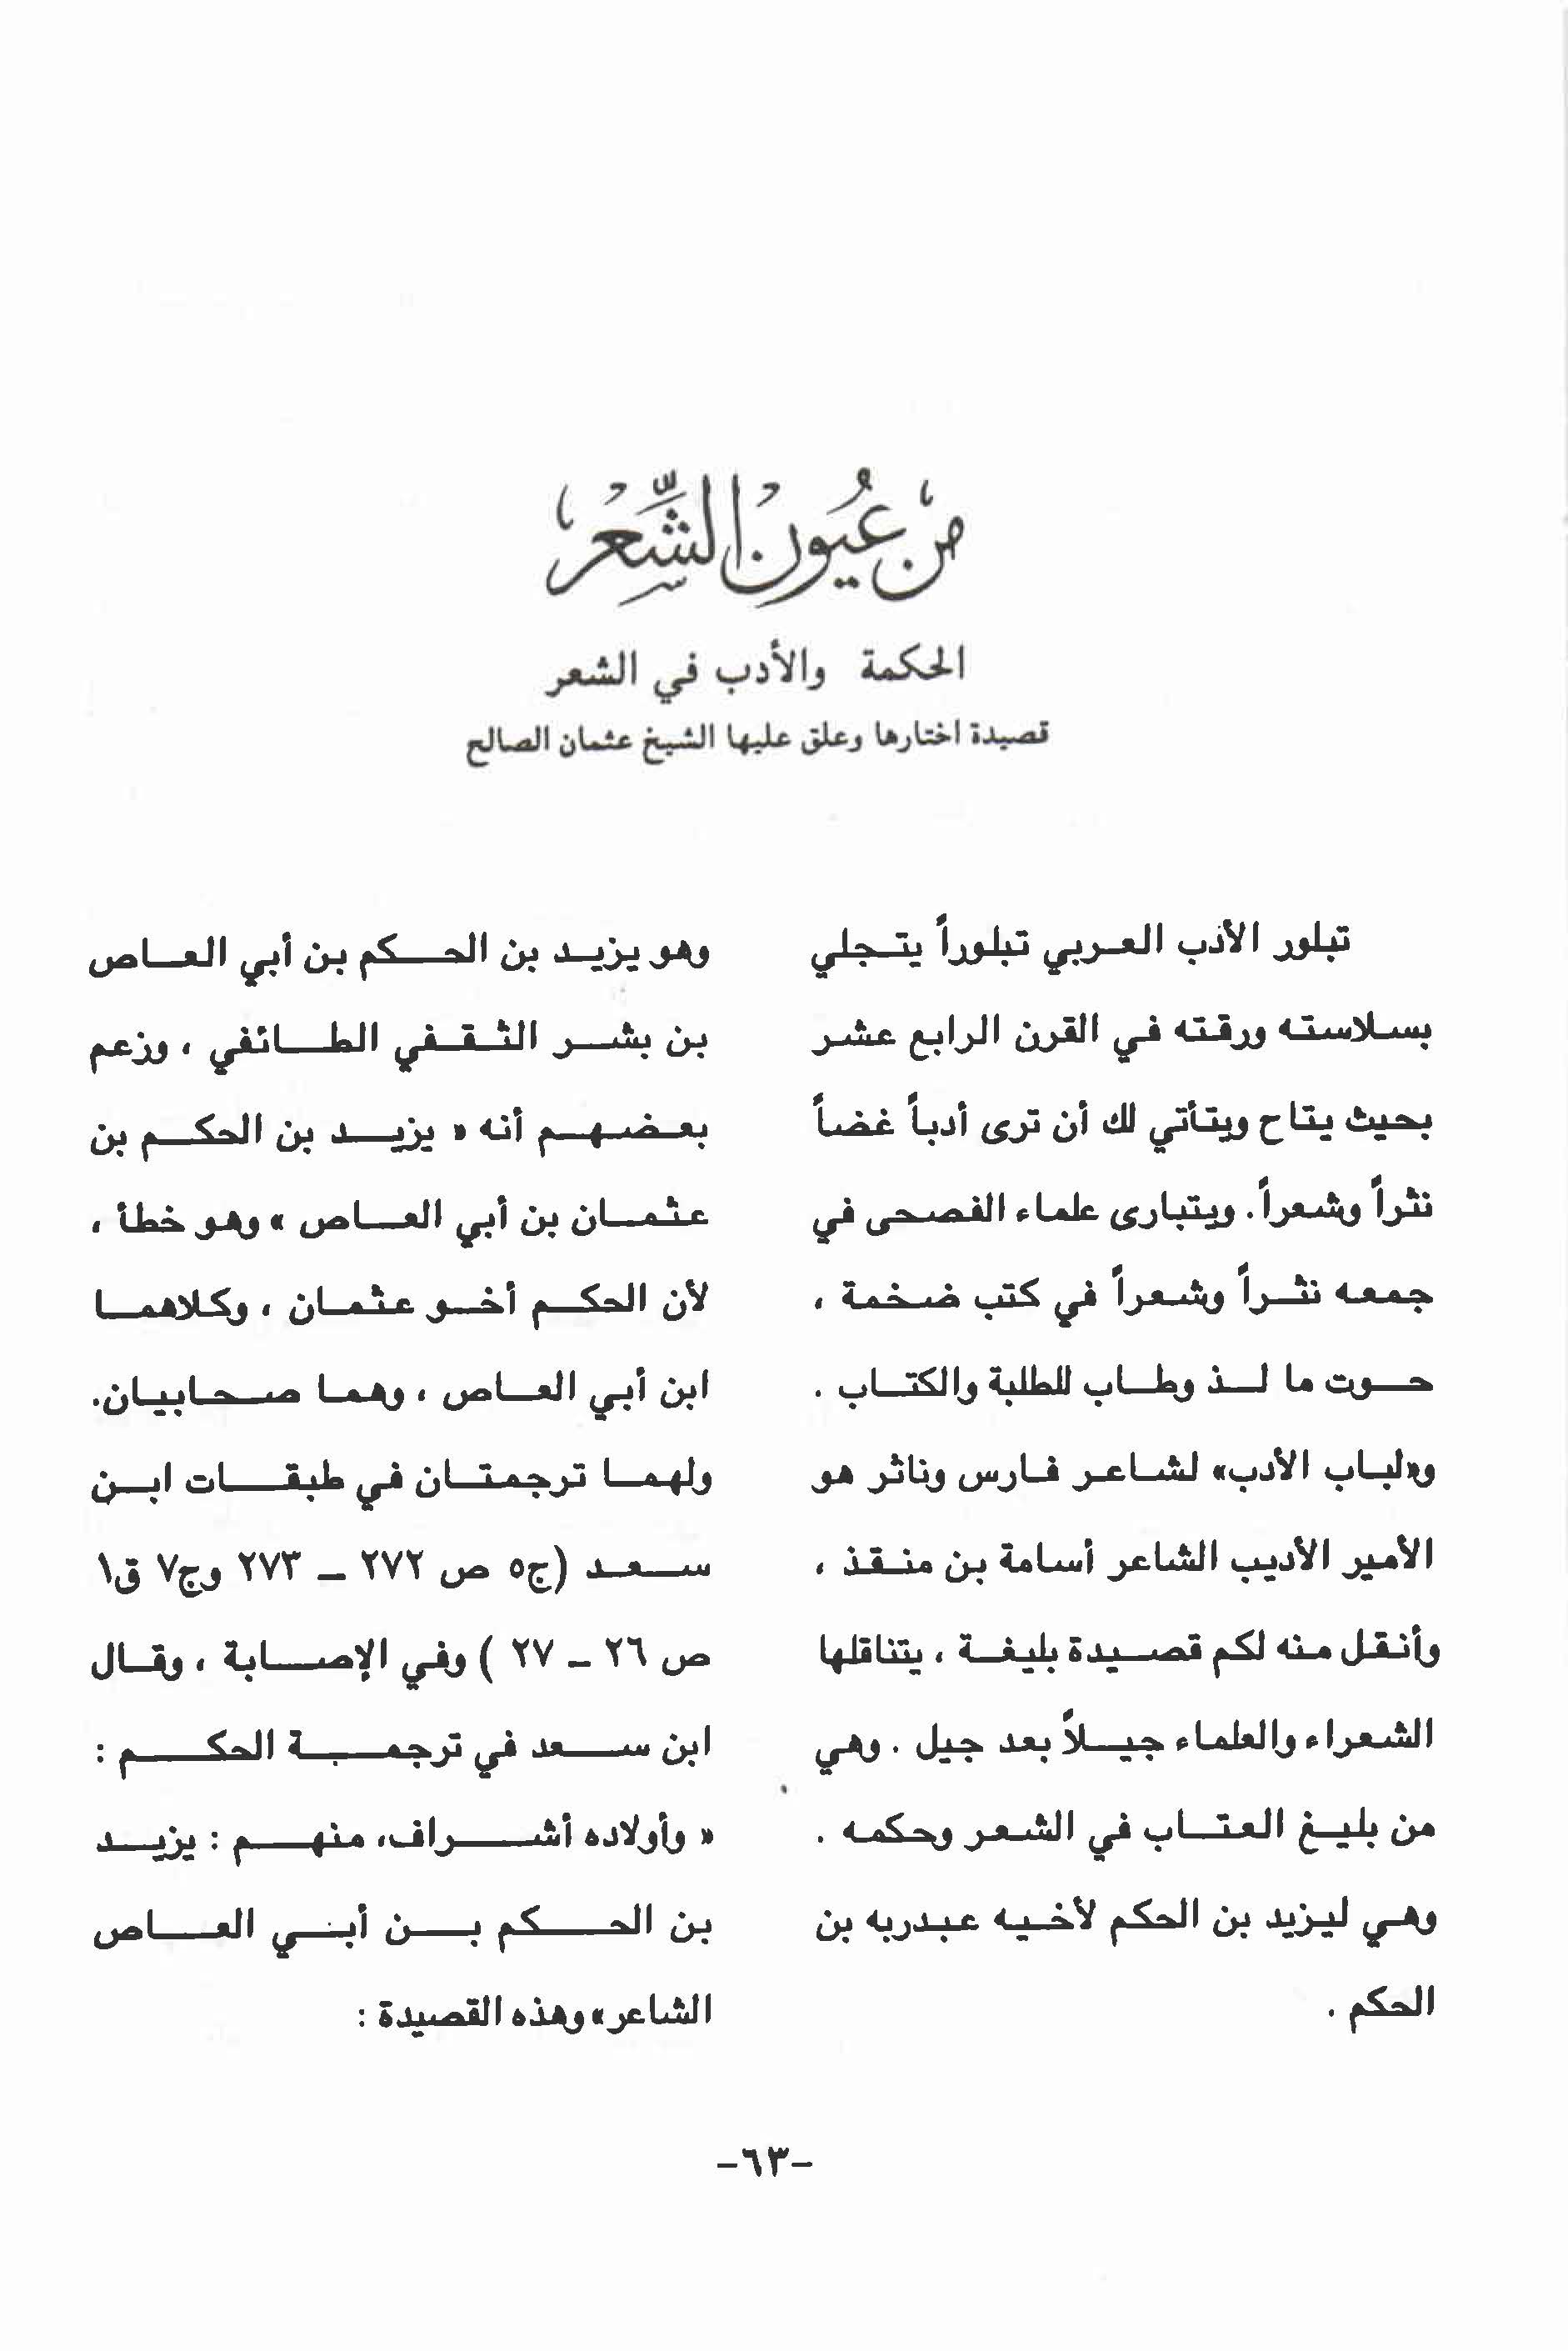 من عيون الشعر
الحكمة والأدب في الشعر
قصيدة اختارها وعلق عليها الشيخ عثمان الصالح
تبلور الأدب العربي تبلوراً يتجلي
بسلاسته ورقته في القرن الرابع عشر
بحيث يتاح ويتأتي لك أن ترى أدباً غضاً
نثراً وشعراً. ويتبارى علماء الفصحى في
جمعه نثراً وشعراً في كتب ضخمة ،
حوت ما لذ وطاب للطلبة والكتاب .
و«لباب الأدب» لشاعر فارس وناثر هو
الأمير الأديب الشاعر أسامة بن منقذ ،
وأنقل منه لكم قصيدة بليغة ، يتناقلها
الشعراء والعلماء جيلاً بعد جيل . وهي
من بليغ العتاب في الشعر وحكمه .
وهي ليزيد بن الحكم لأخيه عبدربه بن
الحكم .
وهو يزيد بن الحكم بن أبي العاص
بن بشر الثقفي الطائفي ، وزعم
بعضهم أنه « يزيد بن الحكم بن
عثمان بن أبي العاص » وهو خطأ ،
لأن الحكم أخو عثمان ، وكلاهما
ابن أبي العاص ، وهما صحابيان.
ولهما ترجمتان في طبقات ابن
سعد (ج٥ ص ٢٧٢ – ٢٧٣ وج٧ ق١
ص ٢٦ – ٢٧ ) وفي الإصابة ، وقال
ابن سعد في ترجمبة الحكم :
« وأولاده أشراف، منهم : يزيد
بن الحكم بن أبي العاص
الشاعر» وهذه القصيدة :
-٦٣-